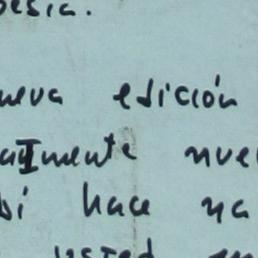 oesía.
nueva edición
mente nue
bí hace ya
usted